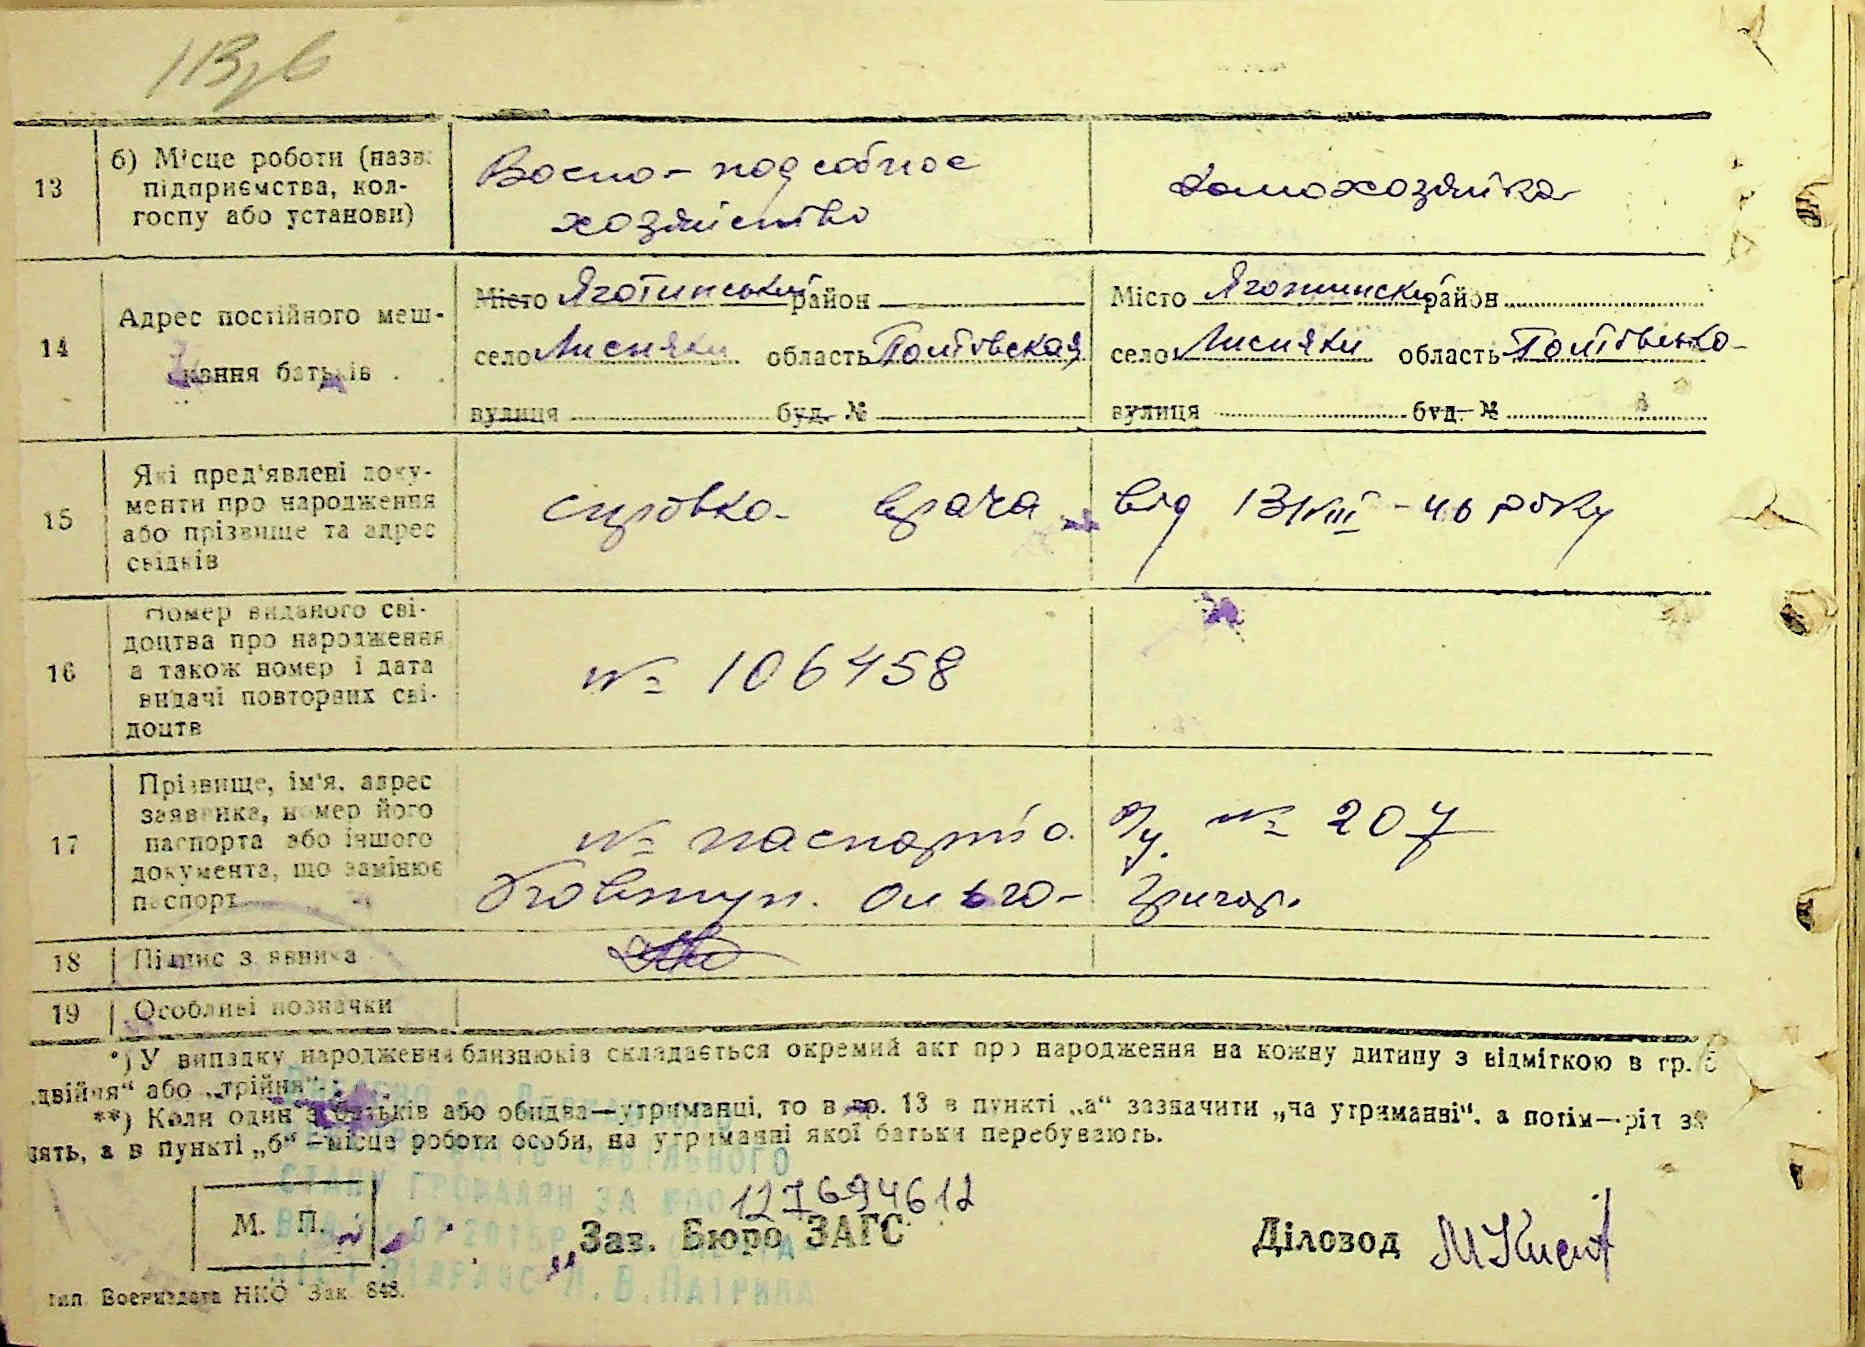 13
б) Місце роботи (назв.
підприємства, кол-
госпу або установи)
Воєно-подсобное
хозяйство
домохозяйка
14
Адрес постійного меш-
кання батьків . .
Місто Яготинський район
село Лисняки область Полтовская
вулиця буд. №
Місто Яготински район
село Лисняки область
вулиця буд. №
15
Які пред'явлені доку-
менти про народження
або прізвище та адрес
свідків
справка врача від 13/VIII - 46 року
16
Номер виданого сві-
доцтва про народження
а також номер і дата
видачі повторних сві-
доцтв
№ 106458
17
Прізвище, ім'я, адрес
заявника, номер його
паспорта або іншого
документа, що замінює
паспорт
№ паспорта № 207
Ковтун. Ольга Григор.
18
Підпис заявника
19
Особливі позначки
*) У випадку народження близнюків складається окремий акт про народження на кожну дитину з відміткою в гр. 5
„двійня“ або „трійня“.
**) Коли один з батьків або обидва—утриманці, то в гр. 13 в пункті „а“ зазначити „на утриманні“, а потім—рід за
нять, а в пункті „б“—місце роботи особи, на утриманні якої батьки перебувають.
СТАНУ ГРОМАДЯН ЗА
127694612
М. П.
Зав. Бюро ЗАГС
Діловод
тип. Воениздата НКО Зак. 648.